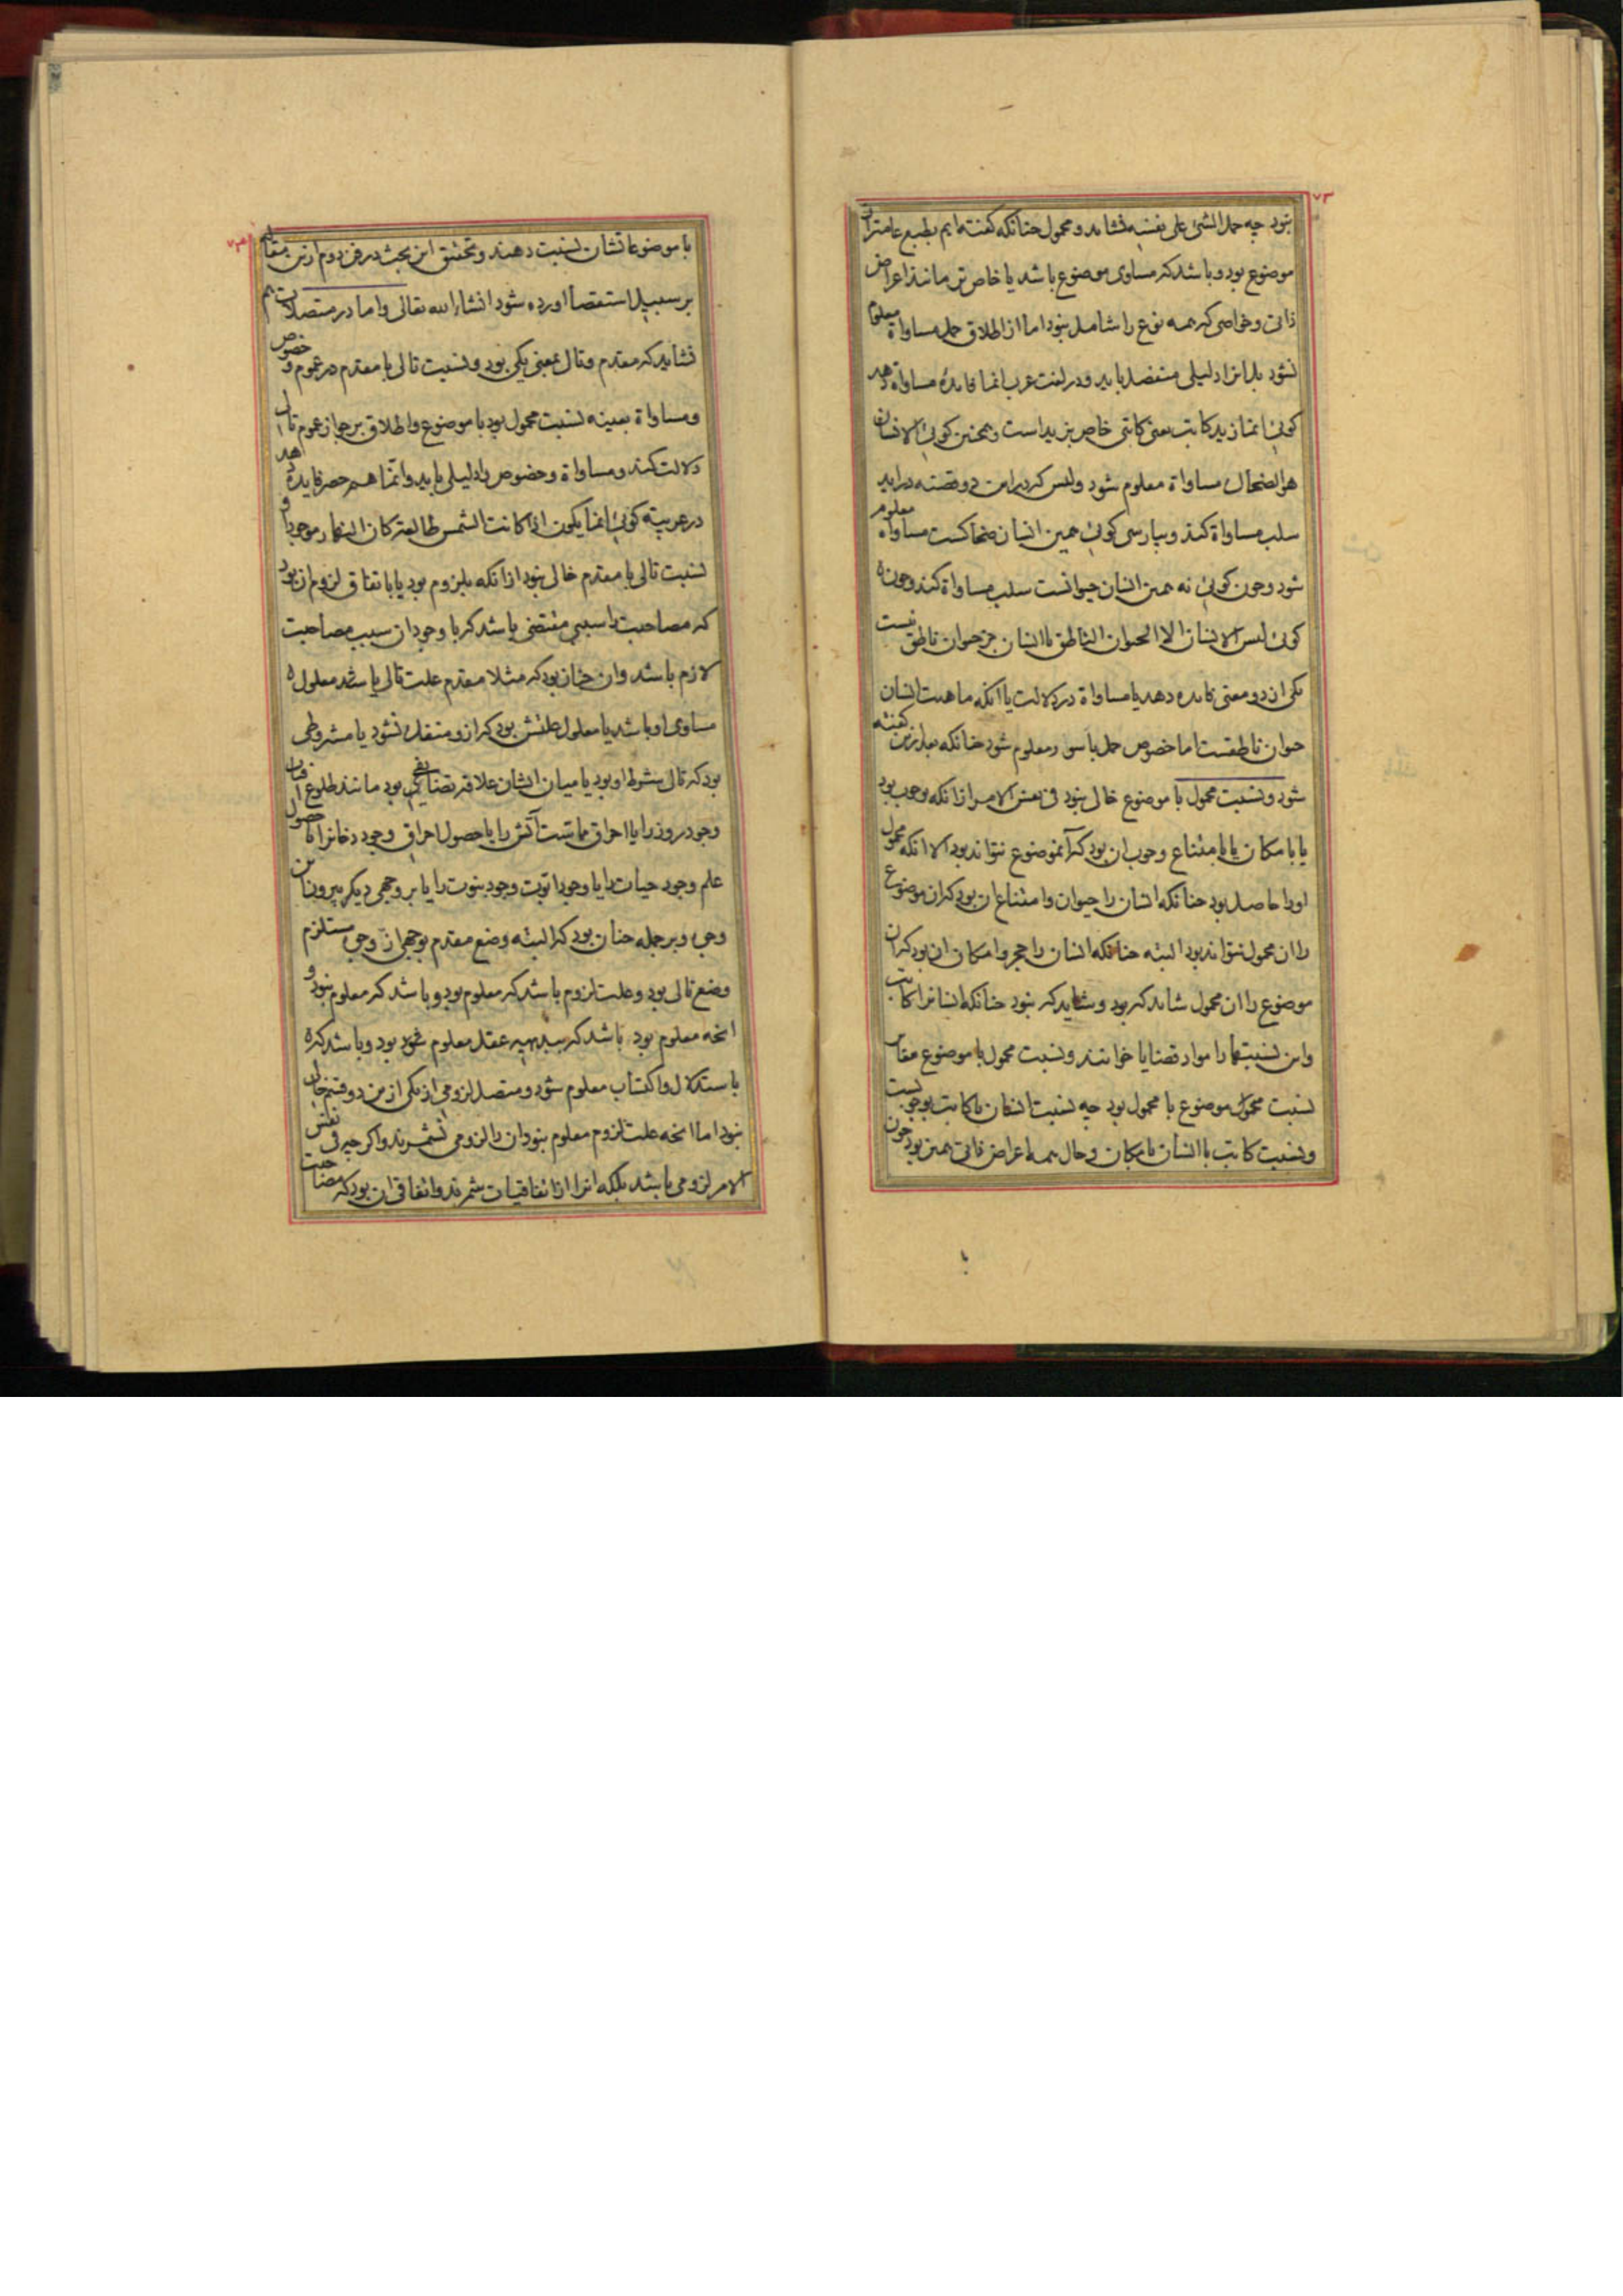 ۷۳
نبود چه حمل الشئ علی نفسه نشاید و محمول چنانکه گفته ایم بطبع عامتر از
موضوع بود و باشد که مساوی موضوع باشد یا خاص تر مانند اعراض
ذاتی و خواصی که همه نوع را شامل نبود اما از اطلاق حمل مساواة معلوم
نشود بل انرا دلیلی منفصل باید و در لغت عرب انما فایدهٔ مساواة دهد
کوئی انما زید کاتب یعنی کاتبی خاص بزید است و همچنین کوئی الانسان
هو الضحاک مساواة معلوم شود و لیس که در این دو قضیه دراید
سلب مساواة کند و بپارسی کوئی همین انسان ضحاکست مساواة معلوم
شود و چون کوئی نه همین انسان حیوانست سلب مساواة کند و چون
کوئی لیس الانسان الا الحیوان الناطق یا انسان جز حیوان ناطق نیست
یکی از دو معنی فایده دهد یا مساواة در دلالت یا انکه ماهیت انسان
حیوان ناطقست اما خصوص حمل با سور معلوم شود چنانکه بعد ازین گفته
شود و نسبت محمول با موضوع خالی نبود فی نفس الامر از انکه بوجوب بود
یا بامکان یا بامتناع وجوب ان بود که آنموضوع نتواند بود الا انکه محمول
اورا حاصل بود چنانکه انسان را حیوان و امتناع ان بود که ان موضوع
را ان محمول نتواند بود البته چنانکه انسان را حجر و امکان ان بود که ان
موضوع را ان محمول شاید که بود و شاید که نبود چنانکه انسانرا کاتب
و این نسبتها را مواد قضایا خوانند و نسبت محمول با موضوع مقابل
نسبت موضوع با محمول بود چه نسبت انسان با کاتب بوجوبست
و نسبت کاتب با انسان بامکان و حال همه اعراض ذاتی همین بود چون
با موضوعاتشان نسبت دهند و تحقیق این بحث در فن دوم ازین مقاله
بر سبیل استقصا اورده شود انشاء الله تعالی و اما در متصلات هم
نشاید که مقدم و تالی بمعنی یکی بود و نسبت تالی با مقدم در عموم و خصوص
و مساواة بعینه نسبت محمول بود با موضوع و اطلاق بر جواز عموم تالی
دلالت کند و مساواة و خصوص را دلیلی باید و انما هم حصر فایده دهد
در عربیه کوئی انما یکون اذا کانت الشمس طالعة کان النهار موجودا و
نسبت تالی با مقدم خالی نبود از انکه بلزوم بود یا باتفاق لزوم ان بود
که مصاحبت را سببی مقتضی باشد که با وجود ان سبب مصاحبت
لازم باشد و ان چنان بود که مثلا مقدم علت تالی باشد معلول
مساوی او باشد یا معلول علتش بود که ازو منفک نشود یا مشروطی
بود که تالی شرط او بود یا میان ایشان علاقه تضایفی بود مانند طلوع افتاب
وجود روز را یا احراق مماست آتش را یا حصول احراق وجود دخانرا یا حصول
علم وجود حیات را یا وجود ابوت وجود بنوت را یا بر وجهی دیگر بیرون ازین
وجوه و بر جمله چنان بود که البته وضع مقدم بوجهی از وجوه مستلزم
وضع تالی بود و علت لزوم باشد که معلوم بود و باشد که معلوم نبود و
انچه معلوم بود باشد که ببدیهه عقل معلوم شود بود و باشد که
باستدلال و اکتساب معلوم شود و متصل لزومی از یکی ازین دو قسم خالی
نبود اما انچه علت لزوم معلوم نبود ان را لزومی نشمرند و اگر چه فی نفس
الامر لزومی باشد بلکه انرا از اتفاقیات شمرند و اتفاقی ان بود که مصاحبت